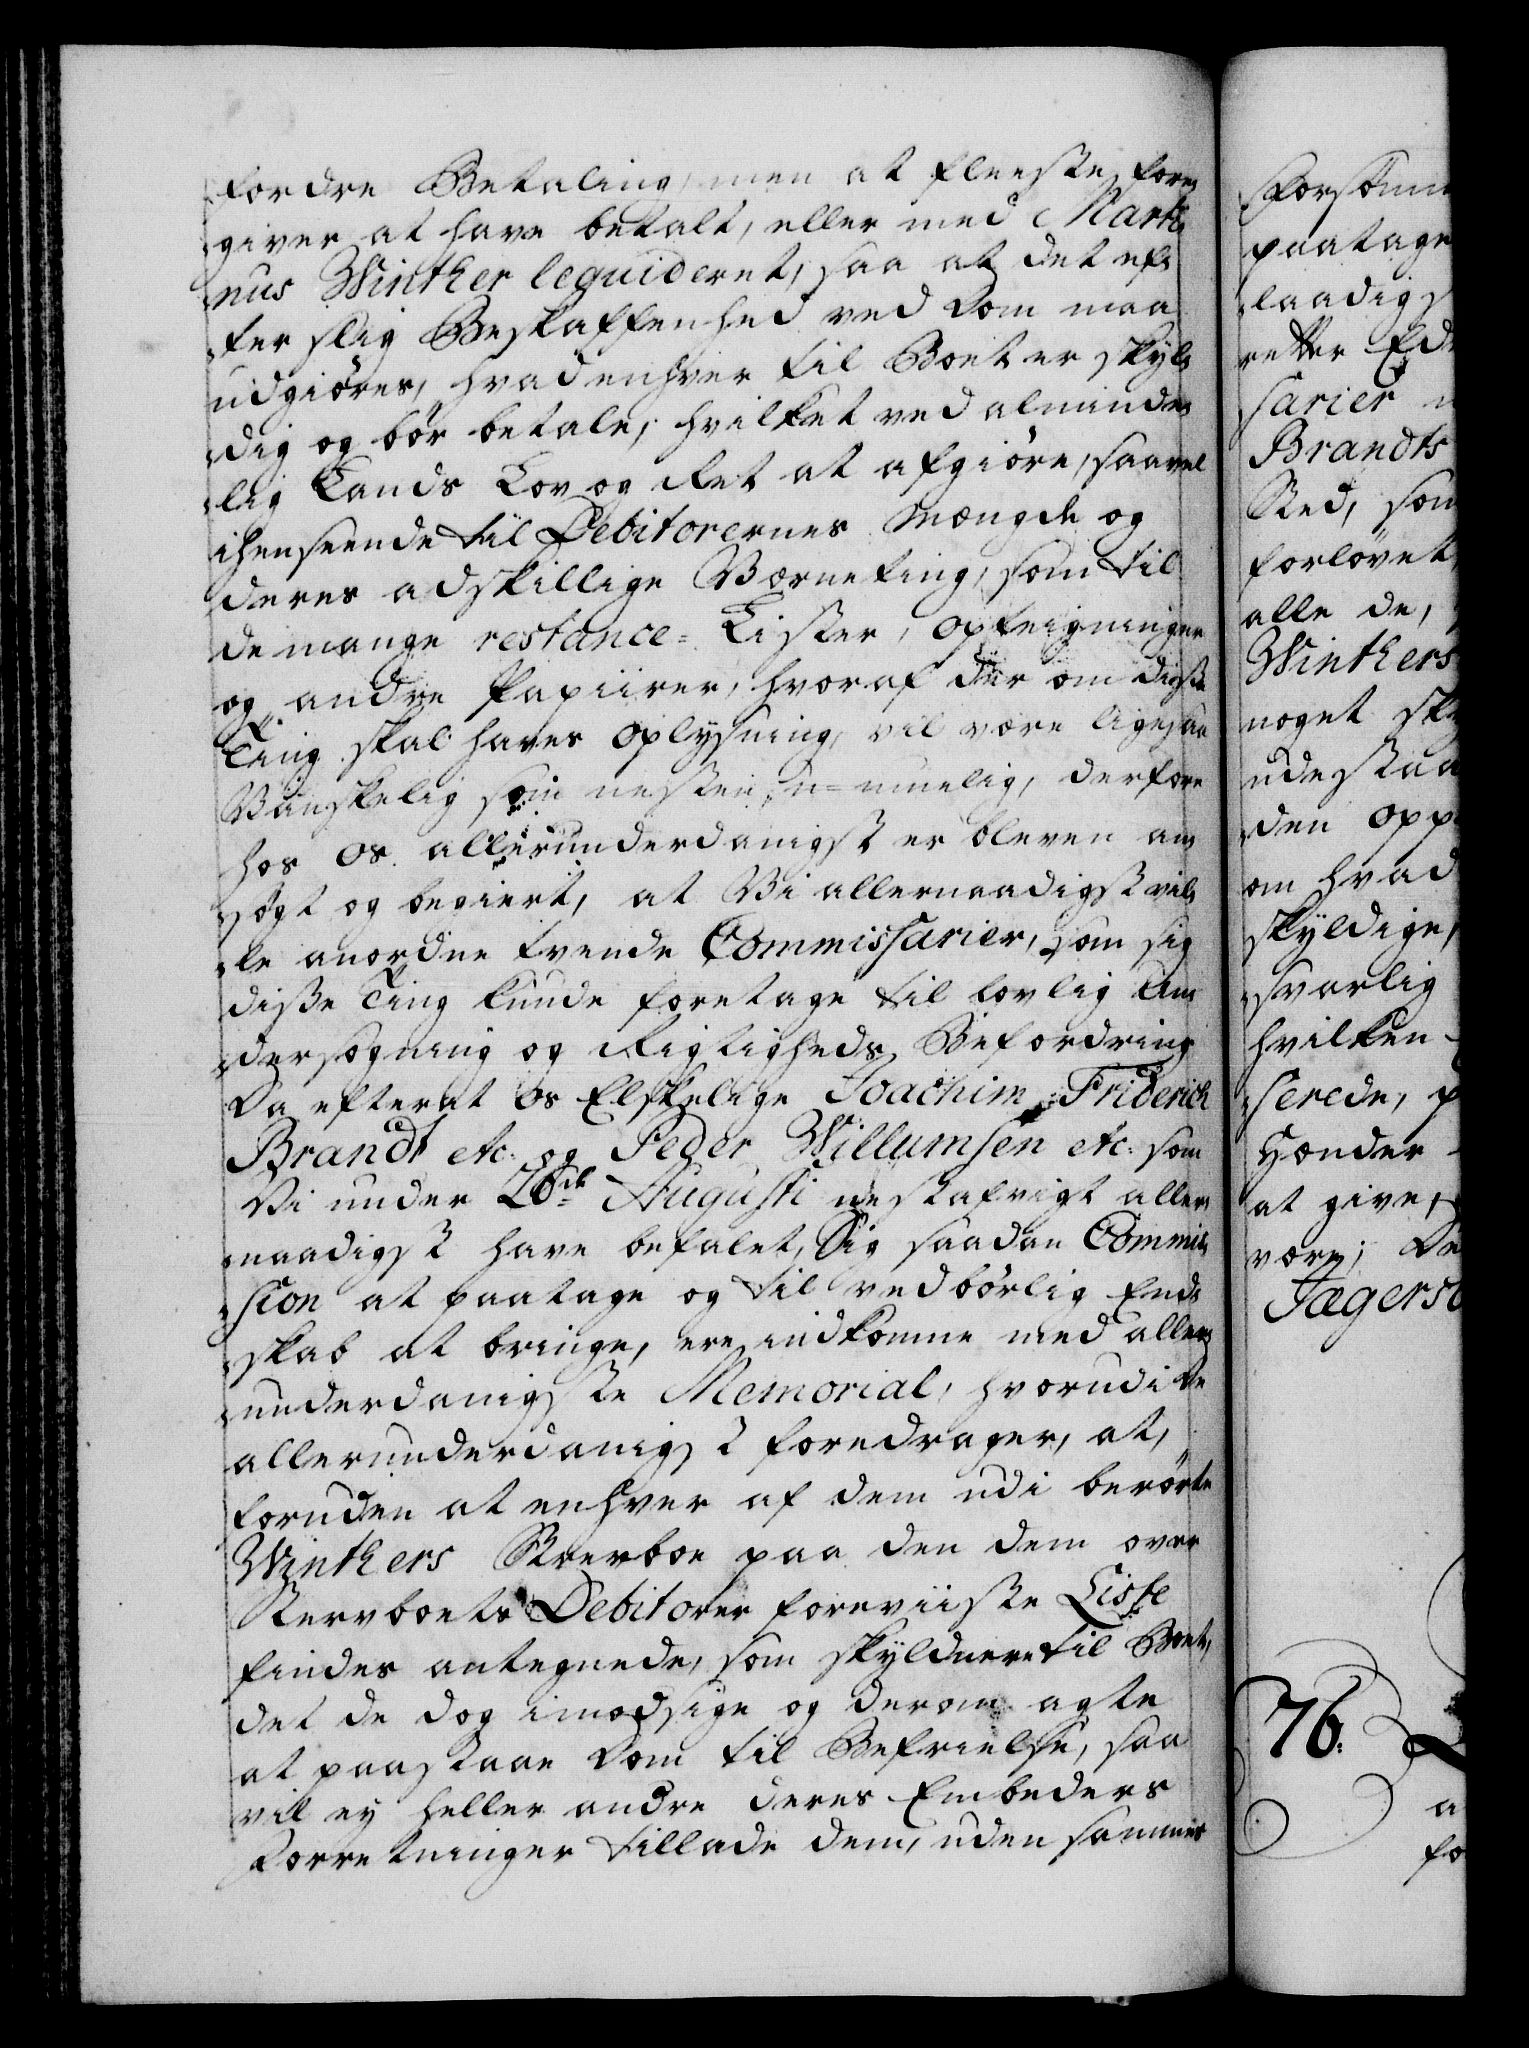 fordre Betaling, men at fleeste fore,,
giver at have betalt, eller med Marti,,
nus Winther leqvideret, saa at det ef,,
ter slig Beskaffenhed ved Dom maa
udgiöres, hvad enhver til Boet er skyl,,
dig og bör betale; hvilket ved alminde,,
lig Lands Lov og Ret at afgiöre, saavel
ihenseende til Debitorernes Mængde og
deres adskillige Værneting, som til
de mange restance-Lister, Optegninger
og andre Papiirer, hvoraf der om disse
Ting skal haves Oplysning, vil være ligesaa
Vanskelig som nesten u-muelig, derfore
hos Os allerunderdanigst er bleven an,,
søgt og begiert, at Vi allernaadigst vil,,
le anordne tvende Commissarier, som sig
disse Ting kunde foretage til lovlig Un,,
dersøgning og Rigtigheds Befordring
Da efterat Os Elskelige Joachim Friderich
Brandt etc: og Peder Willumsen etc: som
Vi under 26de Augusti nestafvigt aller,,
naadigst have befalet, Sig saadan Commis,,
sion at paatage og til vedbörlig End,,
skab at bringe, ere indkomne med aller,,
underdanigste Memorial, hvorudi de
allerunderdanigst foredrager, at,
foruden at enhver af dem udi berørte
Winthers Sterboe paa den dem over
Stervboets Debitorer foreviiste Liste
findes antegnede, som skyldnere til Boet,
det de dog imodsige og derom agte
at paastaae Dom til Befrielse, saa
vil ey heller andre deres Embeders
Forretninger tillade dem, uden sammes
Forsömm
paatage
laadigs
retter Ed
sarier
Brandts
Sted, som
forlövet
alle de,
Winthers
noget sk
udestaa
den opp
om hvad
skyldige,
svarlig
hvilken
serede, p
Hænder
at give,
være; De
Jægers
76.
a
fo